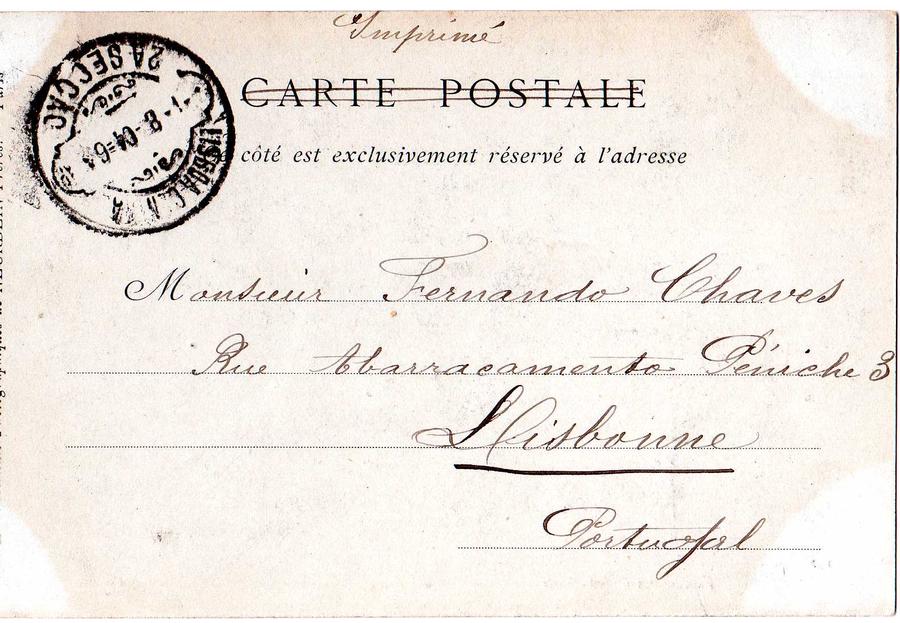 Imprimé
CARTE POSTALE
côté est exclusivement réservé à l'adresse
2A SECÇÃO
1-8-04=6
LISBOA
Monsieur Fernando Chaves
Rue Abarracamento Péniche 3
Lisbonne
Portugal